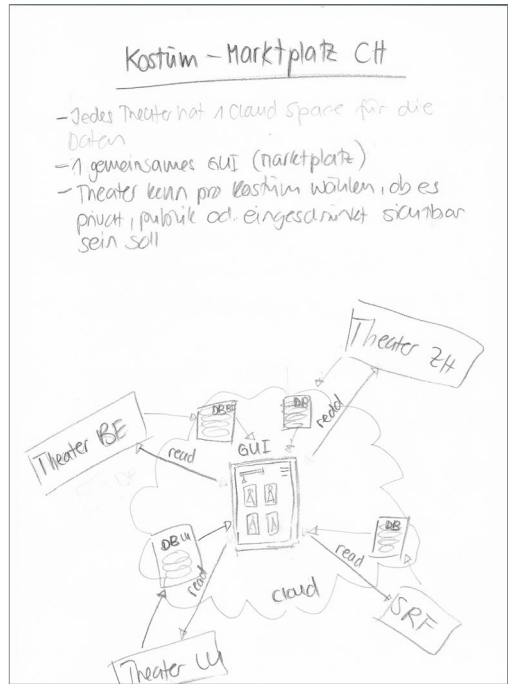 Kostüm - Marktplatz CH
- Jedes Theater hat 1 Cloud Space für die
Daten
- 1 gemeinsames GUI (Marktplatz)
- Theater kann pro Kostüm wählen, ob es
privat, publik od. eingeschränkt sichtbar
sein soll
Theater ZH
DB BE
DB
read
Theater BE
read
GUI
DB LU
DB
read
read
Cloud
SRF
Theater LU